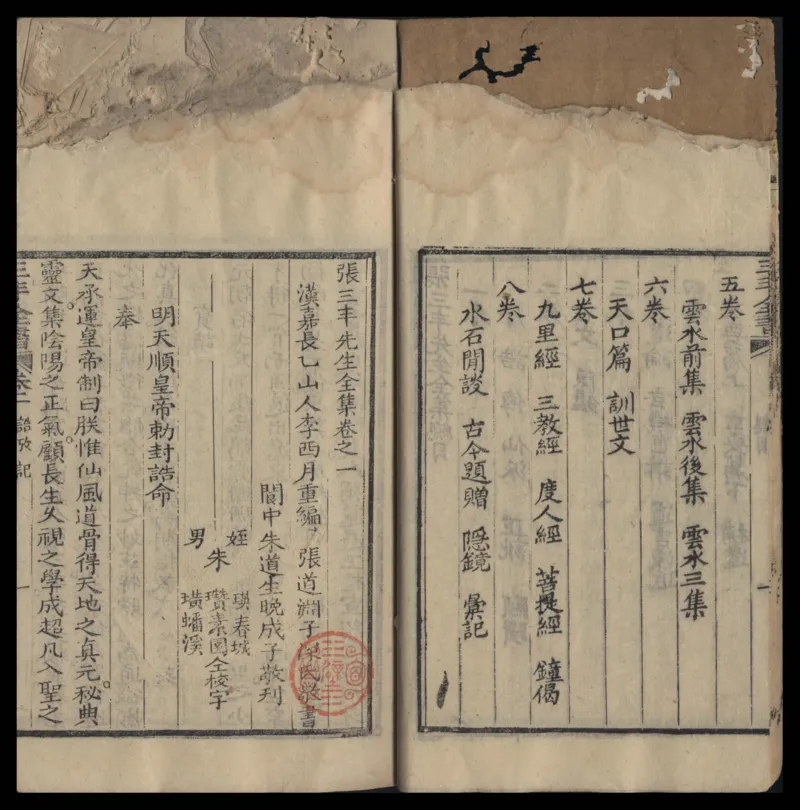 五卷
雲水前集 雲水後集 雲水三集
六卷
天口篇 訓世文
七卷
九皇經 三教經 度人經 菩提經 鐘偈
八卷
水石閒談 古今題贈 隱鏡 彙記
張三丰先生全集卷之一
漢嘉長乙山人李西月重編 張道淵子
閬中朱道生晚成子敬刊
姪 瑛春城
朱 瓚素園仝校字
男 璜蟠溪
明天順皇帝勅封誥命
奉
天承運皇帝制曰朕惟仙風道骨得天地之真元秘典
靈文集陰陽之正氣顧長生久視之學成超凡入聖之
三丰全書 卷一